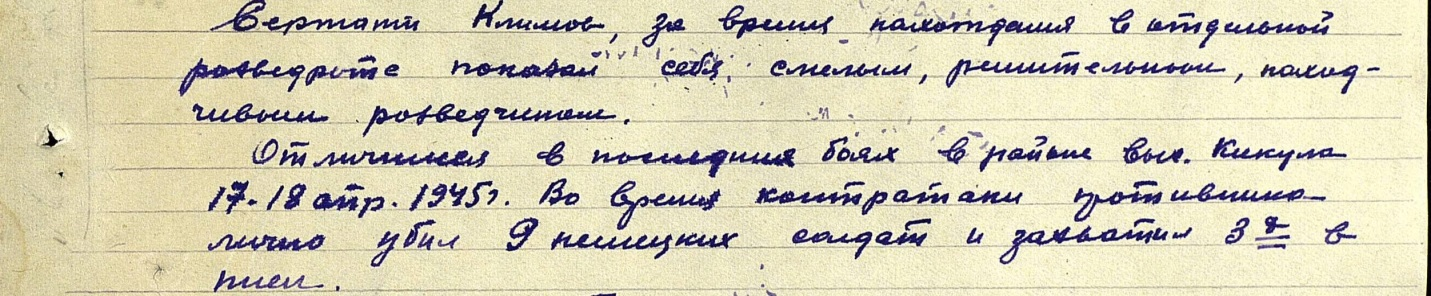 Сержант Климов, за время нахождения в отдельной
разведроте показал себя смелым, решительным, наход-
чивым разведчиком.
Отличился в последних боях в районе выс. Кикула
17-18 апр. 1945г. Во время контратаки противника
лично убил 9 немецких солдат и захватил 3х в
плен.